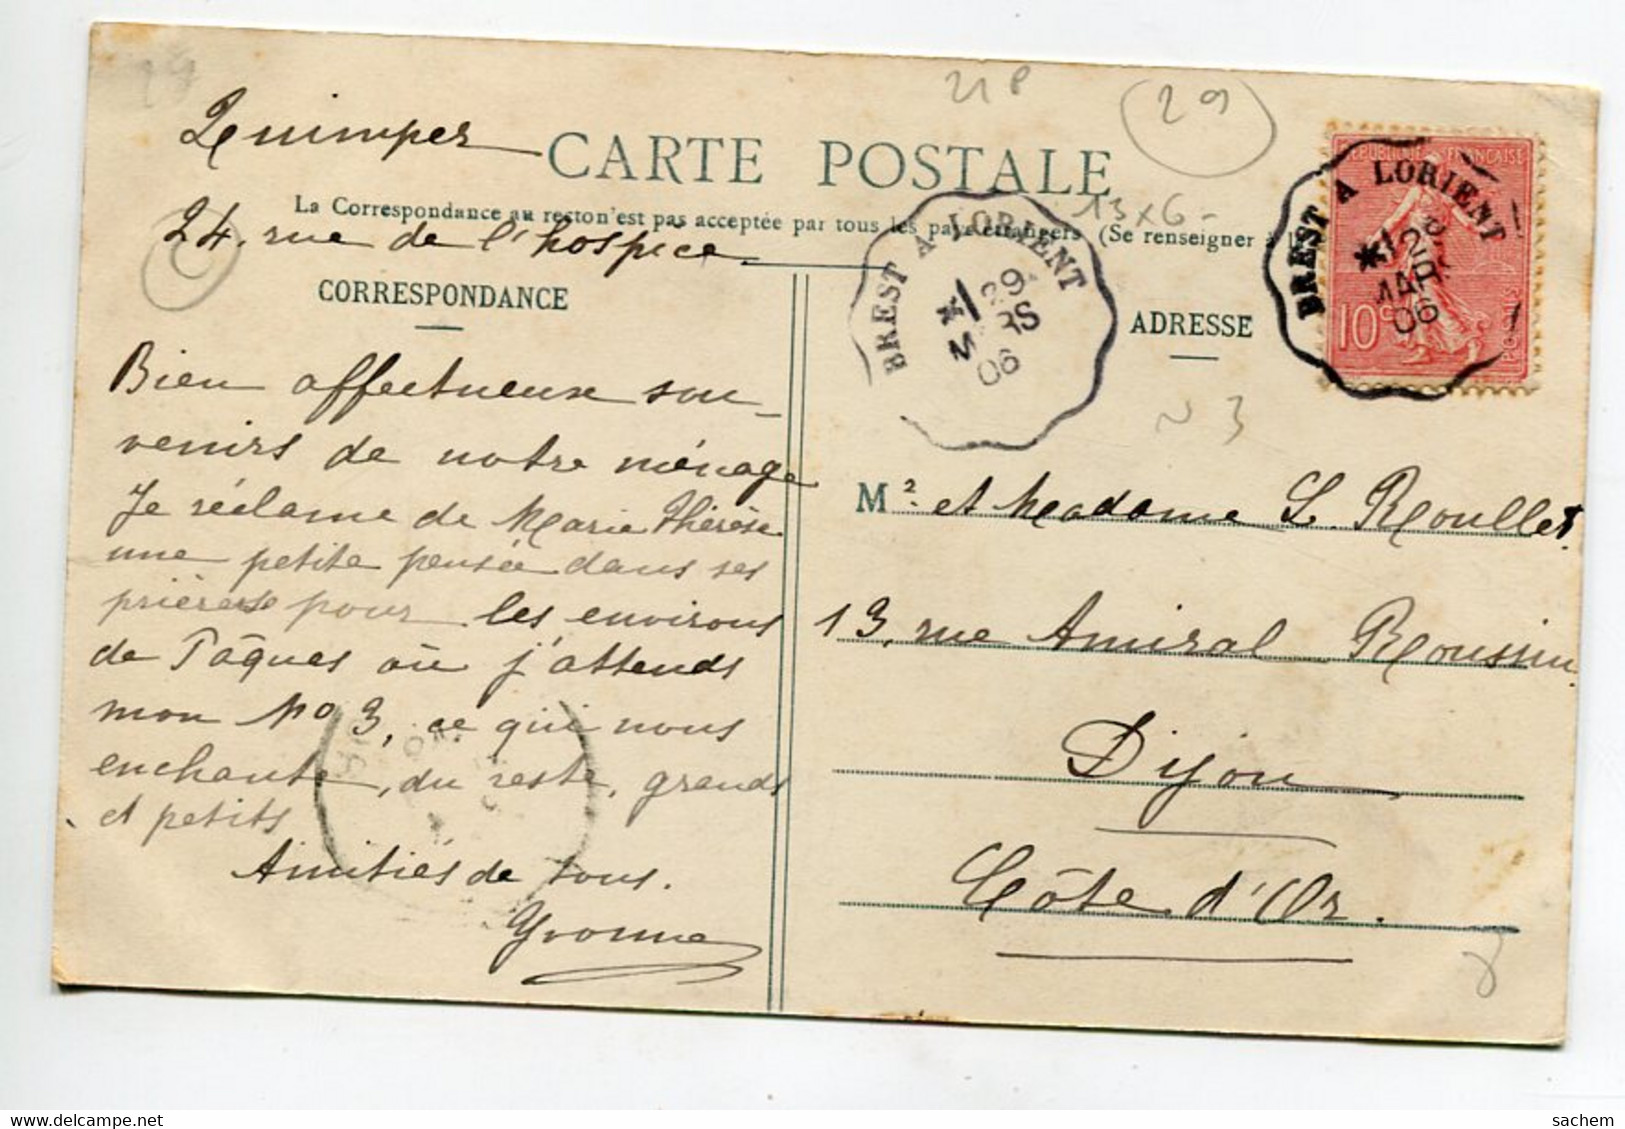 29
21 P
29
Quimper
CARTE POSTALE
24, rue de l'hospice.
La Correspondance au recto n'est pas acceptée par tous les pays étrangers (Se renseigner à
13 x 6 -
CORRESPONDANCE
ADRESSE
BREST A LORIENT
29
MARS
06
BREST A LORIENT
*1 28
MARS
06
REPUBLIQUE FRANÇAISE
10c
POSTES
N 3
Bien affectueux sou-
venirs de notre ménage
Je réclame de Marie Thérèse
une petite pensée dans ses
prières pour les environs
de Pâques où j'attends
mon No 3, ce qui nous
enchante, du reste, grands
et petits
Amitiés de tous.
Yvonne
Mr et Madame L. Roullet
13, rue Amiral Roussin
Dijon
Côte d'Or.
www.delcampe.net
sachem